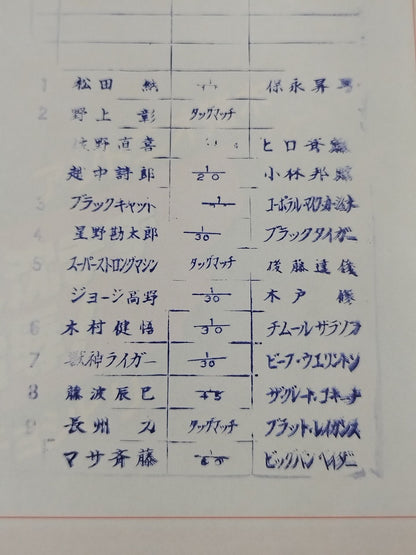 1 松田 納 1/ 保永昇男
2 野上 彰 タッグマッチ
佐野直喜 ヒロ斉藤
越中詩郎 1/20 小林邦昭
3 ブラックキャット 1/ コーポラル・マイク・カーシュナー
4 星野勘太郎 1/30 ブラックタイガー
5 スーパーストロングマシン タッグマッチ 後藤達俊
ジョージ高野 1/30 木戸 修
6 木村健悟 1/30 チムール・ザラソフ
7 獣神ライガー 1/30 ビーフ・ウエリントン
8 藤波辰巳 1/45 ザ・グレート・コキーナ
9 長州 力 タッグマッチ ブラット・レイガンス
マサ斉藤 1/60 ビッグバン・ベイダー